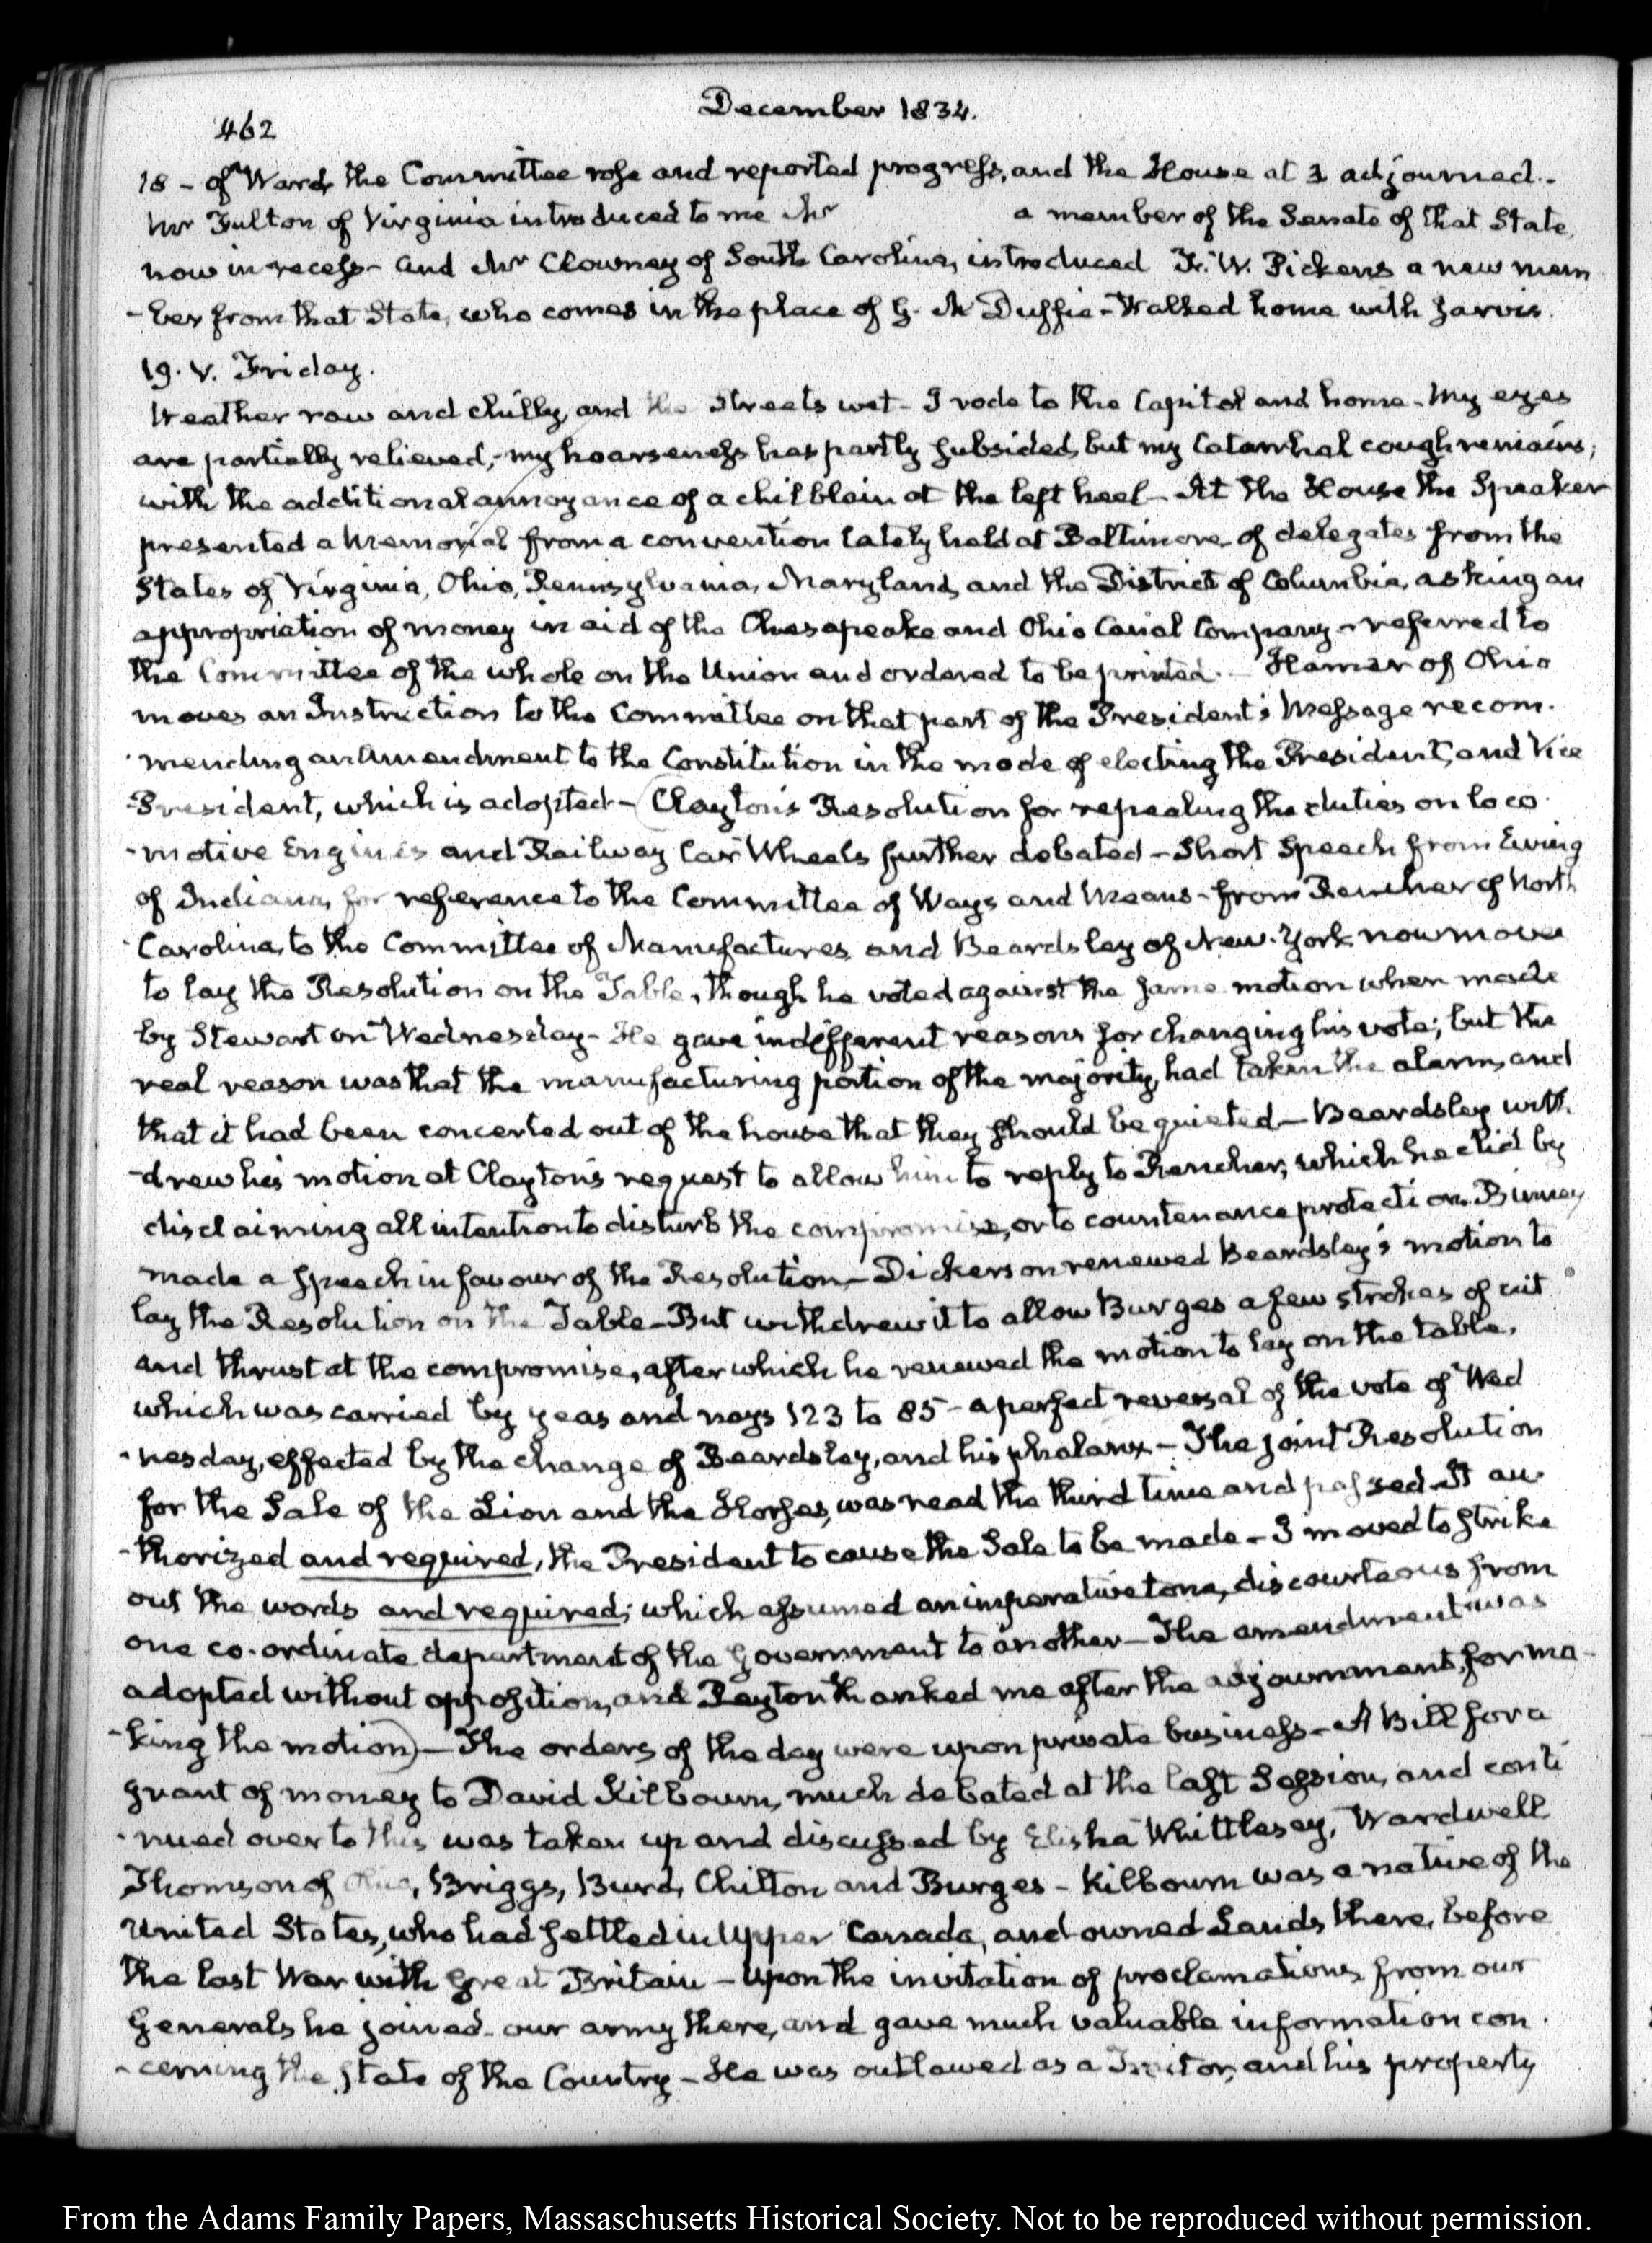 December 1834.
462
18 - of Ward, the Committee rose and reported progress, and the House at 3 adjourned.-
Mr Fulton of Virginia introduced to me Mr a member of the Senate of that State,
now in recess - and Mr Clowney of South Carolina, introduced F. W. Pickens a new mem
-ber from that State, who comes in the place of G. McDuffie - Walked home with Jarvis.
19. V. Friday.
Weather raw and chilly, and the Streets wet - I rode to the Capitol and home - My eyes
are partially relieved, - my hoarseness has partly subsided, but my Catarrhal cough remains;
with the additional annoyance of a chilblain at the left heel - At the House the Speaker
presented a Memorial from a convention lately held at Baltimore, of delegates from the
States of Virginia, Ohio, Pennsylvania, Maryland, and the District of Columbia, asking an
appropriation of money in aid of the Chesapeake and Ohio Canal Company - referred to
the Committee of the whole on the Union and ordered to be printed. - Hamer of Ohio
moves an Instruction to the Committee on that part of the President's Message recom-
mending an Amendment to the Constitution in the mode of electing the President, and Vice
-President, which is adopted - (Clayton's Resolution for repealing the duties on loco
-motive Engines and Railway Car Wheels further debated - Short Speech from Ewing
of Indiana, for reference to the Committee of Ways and Means - from Rencher of North
Carolina, to the Committee of Manufactures, and Beardsley of New-York now move
to lay the Resolution on the Table, though he voted against the same motion when made
by Stewart on Wednesday - He gave indifferent reasons for changing his vote; but the
real reason was that the manufacturing portion of the majority, had taken the alarm, and
that it had been concerted out of the house that they should be quieted - Beardsley with
-drew his motion at Clayton's request to allow him to reply to Rencher, which he did by
disclaiming all intention to disturb the compromise, or to countenance protection. Binney
made a speech in favour of the Resolution - Dickerson renewed Beardsley's motion to
lay the Resolution on the Table - But withdrew it to allow Burges a few strokes of cut
and thrust at the compromise, after which he renewed the motion to lay on the table,
which was carried by yeas and nays 123 to 85 - a perfect reversal of the vote of Wed
-nesday, effected by the change of Beardsley, and his phalanx - The joint Resolution
for the Sale of the Lion and the Horses, was read the third time and passed. It au
-thorized and required, the President to cause the Sale to be made - I moved to strike
out the words and required; which assumed an imperative tone, discourteous from
one co-ordinate department of the Government to another - The amendment was
adopted without opposition, and Peyton thanked me after the adjournment, for ma-
-king the motion) - The orders of the day were upon private business - A Bill for a
grant of money to David Kilbourn, much debated at the last Session, and conti
-nued over to this was taken up and discussed by Elisha Whittlesey, Wardwell
Thomson of Ohio, Briggs, Burd, Chilton and Burges - Kilbourn was a native of the
United States, who had settled in Upper Canada, and owned Lands there, before
the last War with Great Britain - Upon the invitation of proclamations from our
Generals he joined our army there, and gave much valuable information con-
-cerning the state of the Country - He was outlawed as a Traitor, and his property
From the Adams Family Papers, Massaschusetts Historical Society. Not to be reproduced without permission.